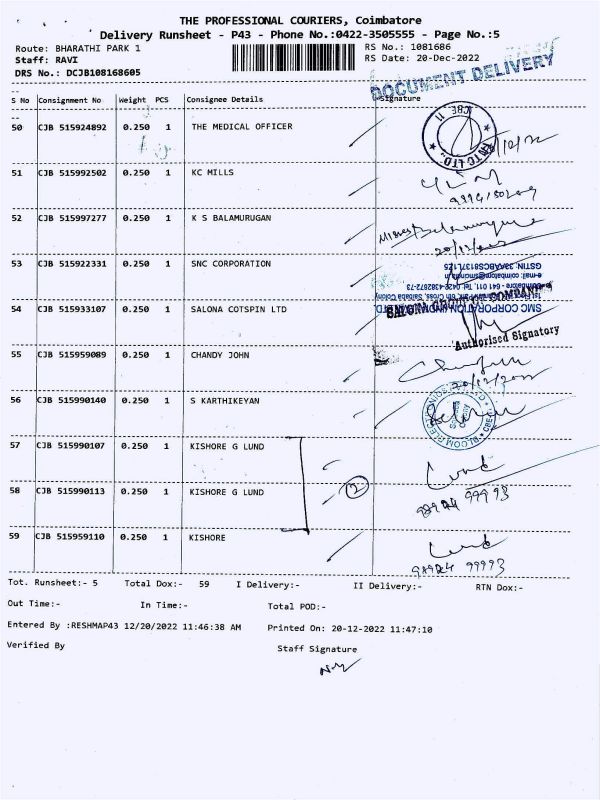 THE PROFESSIONAL COURIERS, Coimbatore
Delivery Runsheet - P43 - Phone No.:0422-3505555 - Page No.:5
Route: BHARATHI PARK 1 RS No.: 1081686
Staff: RAVI RS Date: 20-Dec-2022
DRS No.: DCJB108168605
DOCUMENT DELIVERY
S No Consignment No Weight PCS Consignee Details Signature
50 CJB 515924892 0.250 1 THE MEDICAL OFFICER
51 CJB 515992502 0.250 1 KC MILLS
52 CJB 515997277 0.250 1 K S BALAMURUGAN
20/12/2022
53 CJB 515922331 0.250 1 SNC CORPORATION
54 CJB 515933107 0.250 1 SALONA COTSPIN LTD
SMC CORPORATION
Authorised Signatory
55 CJB 515959089 0.250 1 CHANDY JOHN
20/12/2022
56 CJB 515990140 0.250 1 S KARTHIKEYAN
57 CJB 515990107 0.250 1 KISHORE G LUND
Lund
58 CJB 515990113 0.250 1 KISHORE G LUND
2
98924 99993
59 CJB 515959110 0.250 1 KISHORE
Lund
98924 99993
Tot. Runsheet:- 5 Total Dox:- 59 I Delivery:- II Delivery:- RTN Dox:-
Out Time:- In Time:- Total POD:-
Entered By :RESHMAP43 12/20/2022 11:46:38 AM Printed On: 20-12-2022 11:47:10
Verified By Staff Signature